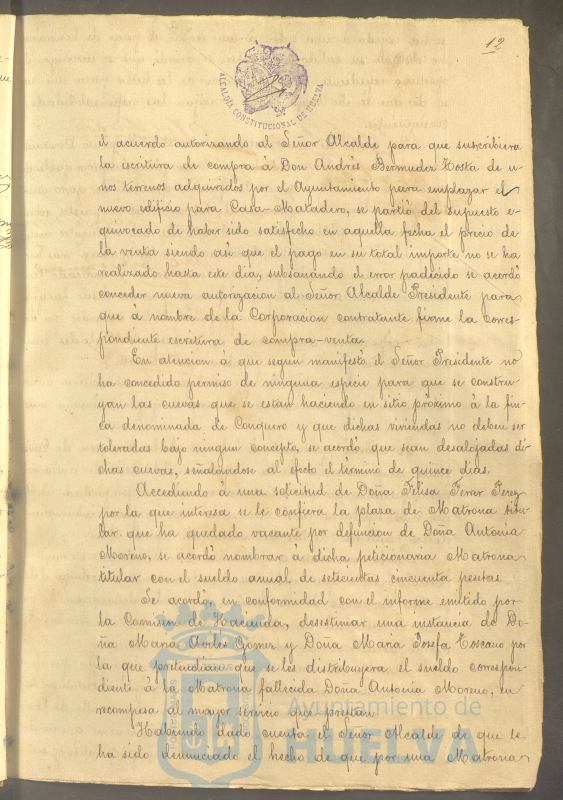 12
ALCALDIA CONSTITUCIONAL DE HUELVA
el acuerdo autorizando al Señor Alcalde para que suscribiera
la escritura de compra á Don Andrés Bermudez Tosta de u-
nos terrenos adquiridos por el Ayuntamiento para emplazar el
nuevo edificio para Casa-Matadero, se partió del supuesto e-
quivocado de haber sido satisfecho en aquella fecha el precio de
la venta siendo así que el pago en su total importe no se ha
realizado hasta este dia, subsanando el error padecido se acordó
conceder nueva autorizacion al Señor Alcalde Presidente para
que á nombre de la Corporacion contratante firme la corres-
pondiente escritura de compra-venta.
En atencion á que segun manifestó el Señor Presidente no
ha concedido permiso de ninguna especie para que se constru-
yan las cuevas que se están haciendo en sitio próximo á la fin-
ca denominada de Conquero y que dichas viviendas no deben ser
toleradas bajo ningun concepto, se acordó que sean desalojadas di-
chas cuevas, señalándose al efecto el término de quince dias.
Accediendo á una solicitud de Doña Felisa Ferrer Perez
por la que interesa se le confiera la plaza de Matrona titu-
lar que ha quedado vacante por defuncion de Doña Antonia
Moreno, se acordó nombrar á dicha peticionaria Matrona
titular con el sueldo anual de setecientas cincuenta pesetas.
Se acordó, en conformidad con el informe emitido por
la Comision de Hacienda, desestimar una instancia de Do-
ña Maria Aviles Gomez y Doña Maria Josefa Toscano por
la que pretendian que se les distribuyera el sueldo correspon-
diente á la Matrona fallecida Doña Antonia Moreno, en
recompesa al mayor servicio que prestan.
Habiendo dado cuenta el Señor Alcalde de que le
ha sido denunciado el hecho de que por una Matrona
Ayuntamiento de
HUELVA